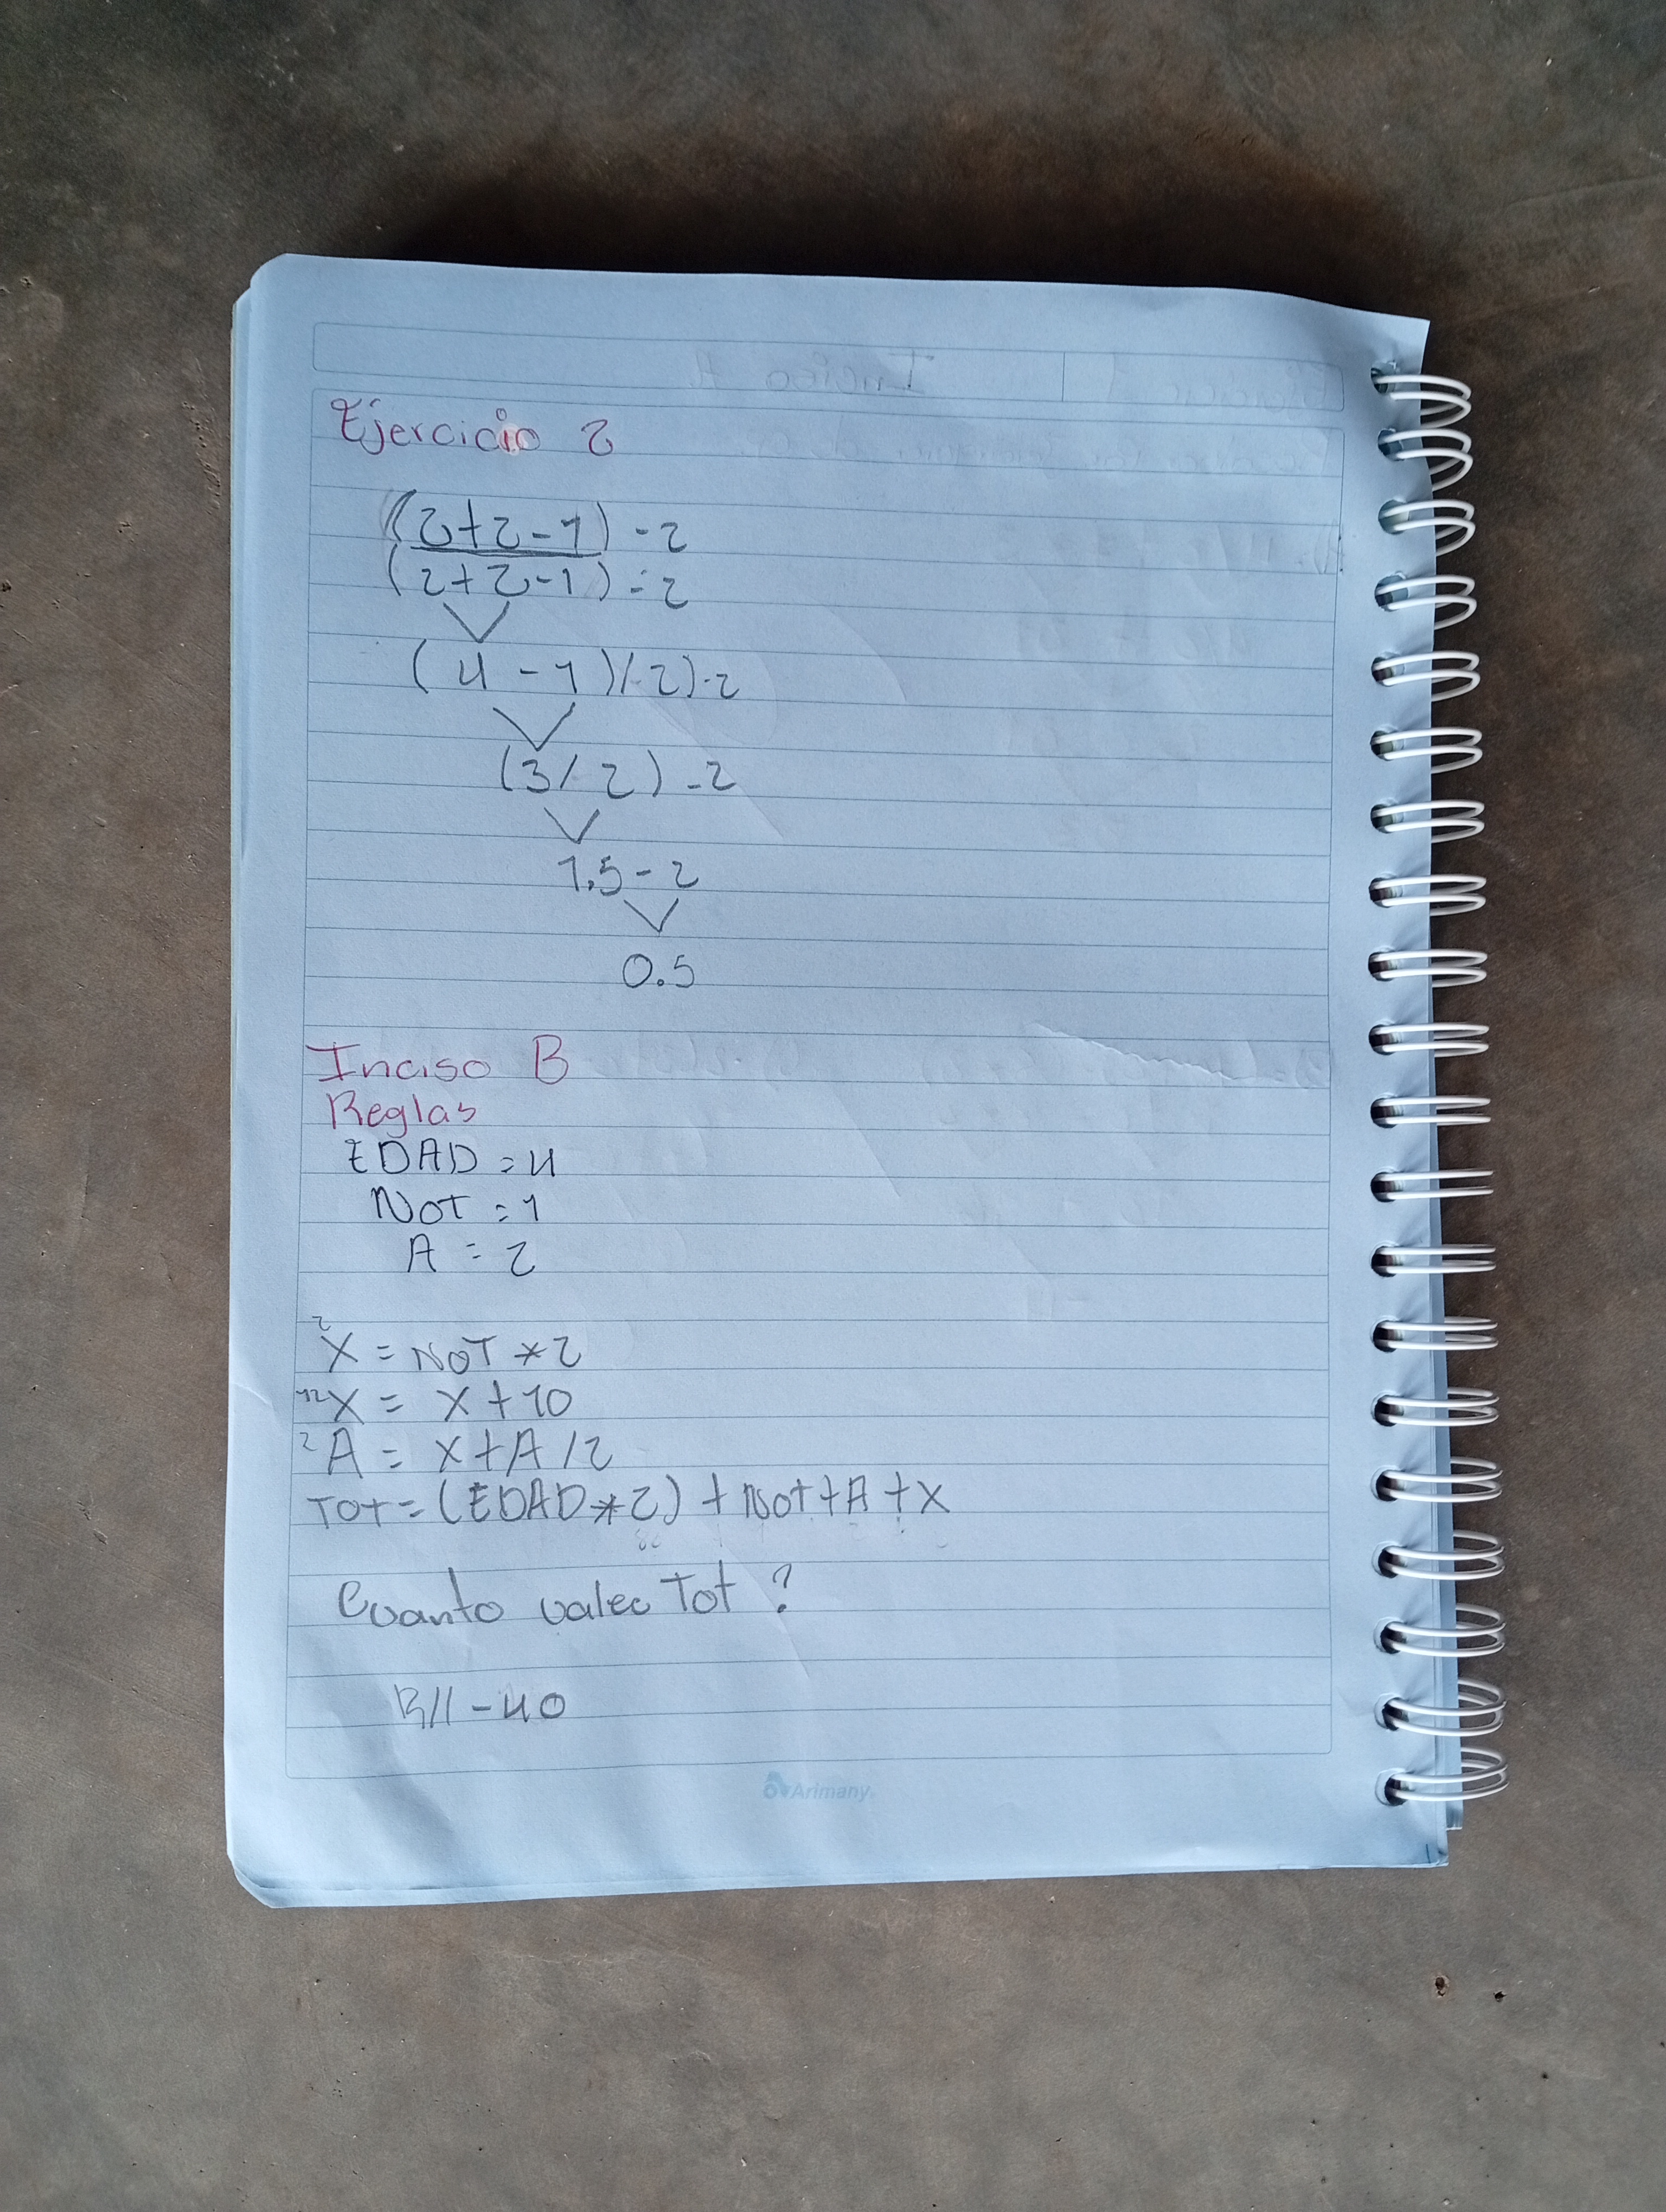 Ejercicio 2
(2+2-1) - 2
(2+2-1) = 2
(4 - 1)(-2)-2
(3/2) - 2
1.5 - 2
0.5
Inciso B
Reglas
EDAD = 4
NOT = 1
A = 2
2 X = NOT * 2
12 X = X + 10
2 A = X + A / 2
TOT = (EDAD * 2) + Not + A + X
Cuanto valeo Tot ?
R// - 40
Arimany